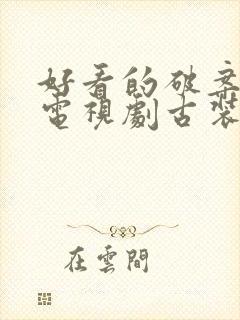 好看的破案
電視劇古裝
在雲間